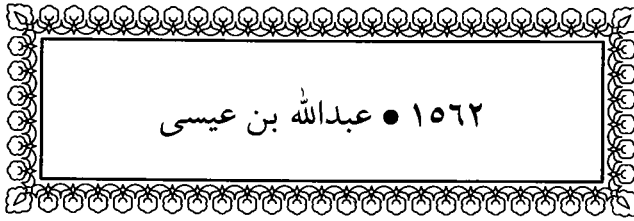 ١٥٦٢ ● عبدالله بن عيسى